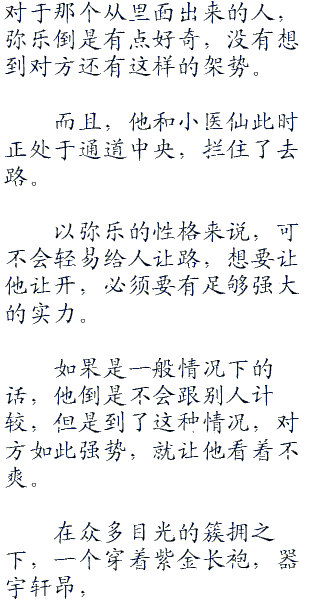 对于那个从里面出来的人，
弥乐倒是有点好奇，没有想
到对方还有这样的架势。
而且，他和小医仙此时
正处于通道中央，拦住了去
路。
以弥乐的性格来说，可
不会轻易给人让路，想要让
他让开，必须要有足够强大
的实力。
如果是一般情况下的
话，他倒是不会跟别人计
较，但是到了这种情况，对
方如此强势，就让他看着不
爽。
在众多目光的簇拥之
下，一个穿着紫金长袍，器
宇轩昂，